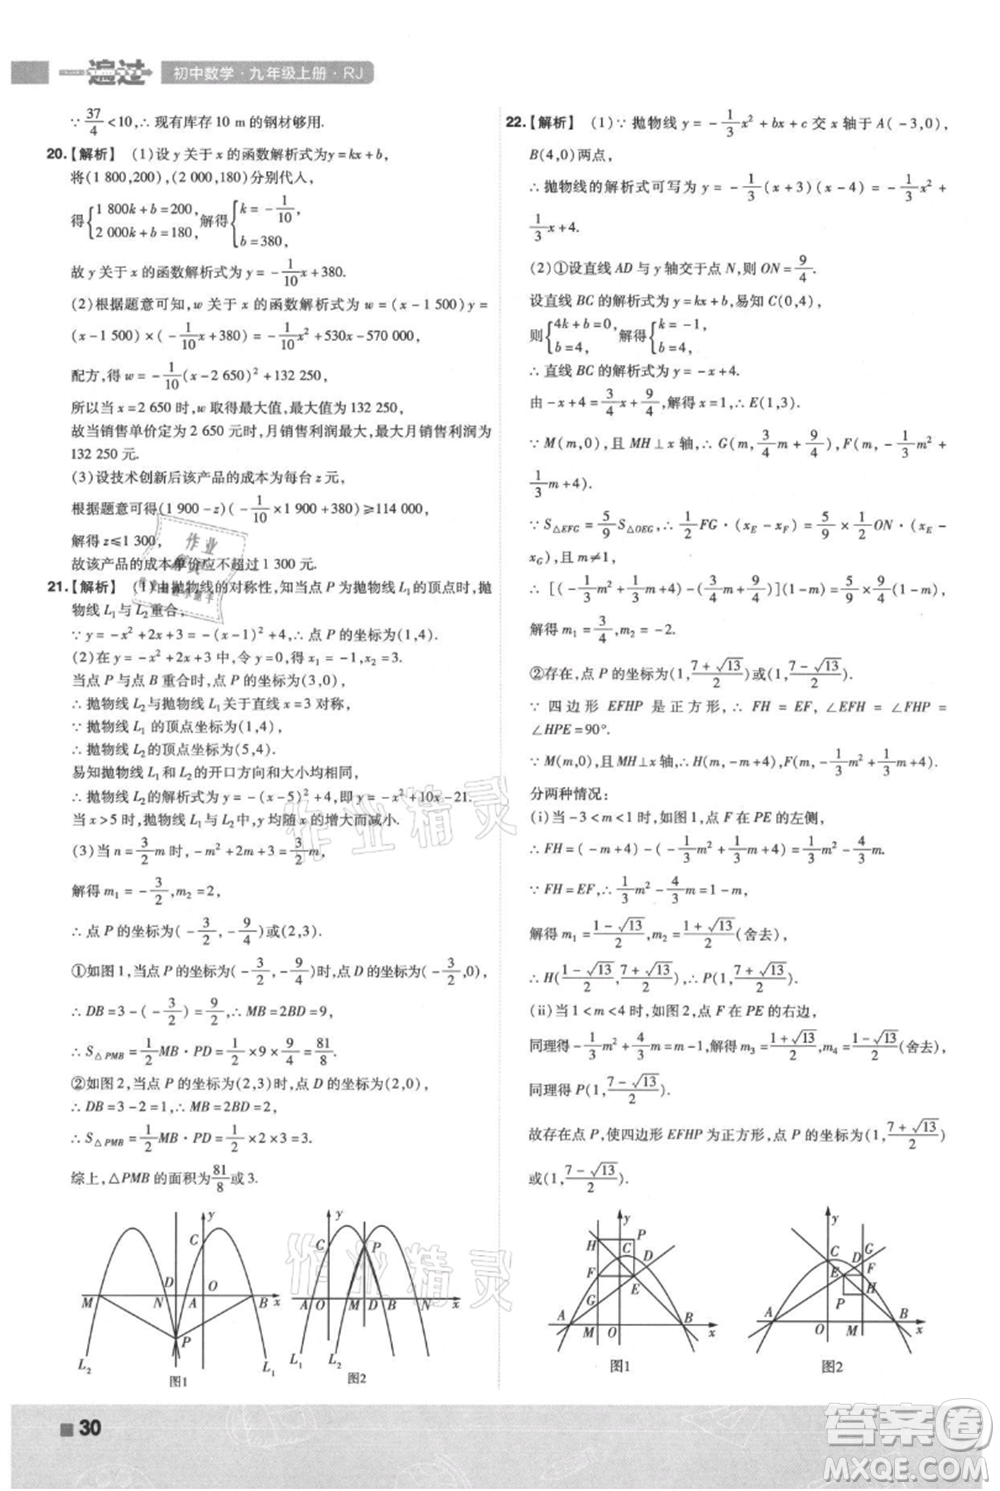 一遍过 初中数学·九年级上册·RJ
∵ 37/4 <10,∴ 现有库存 10 m 的钢材够用.
20.【解析】 (1)设 y 关于 x 的函数解析式为 y=kx+b,
将(1 800,200),(2 000,180)分别代入,
得{1 800k+b=200, 2 000k+b=180,解得{k=-1/10, b=380,
故 y 关于 x 的函数解析式为 y=-1/10x+380.
(2)根据题意可知,w 关于 x 的函数解析式为 w=(x-1 500)y=
(x-1 500)×(-1/10x+380)=-1/10x²+530x-570 000,
配方,得 w=-1/10(x-2 650)²+132 250,
所以当 x=2 650 时,w 取得最大值,最大值为 132 250,
故当销售单价定为 2 650 元时,月销售利润最大,最大为
132 250 元.
(3)设技术创新后该产品的成本为每台 z 元,
根据题意可得(1 900-z)(-1/10×1 900+380)≥114 000,
解得 z≤1 300,
故该产品的成本单价应不超过 1 300 元.
21.【解析】 (1)由抛物线的对称性,知当点 P 为抛物线 L₁ 的顶点时,抛
物线 L₁ 与 L₂ 重合,
∵ y=-x²+2x+3=-(x-1)²+4,∴ 点 P 的坐标为(1,4).
(2)在 y=-x²+2x+3 中,令 y=0,得 x₁=-1,x₂=3.
当点 P 与点 B 重合时,点 P 的坐标为(3,0),
∴ 抛物线 L₂ 与抛物线 L₁ 关于直线 x=3 对称,
∵ 抛物线 L₁ 的顶点坐标为(1,4),
∴ 抛物线 L₂ 的顶点坐标为(5,4).
易知抛物线 L₁ 和 L₂ 的开口方向和大小均相同,
∴ 抛物线 L₂ 的解析式为 y=-(x-5)²+4,即 y=-x²+10x-21.
当 x>5 时,抛物线 L₁ 与 L₂ 中,y 均随 x 的增大而减小.
(3)当 n=3/2m 时,-m²+2m+3=3/2m,
解得 m₁=-3/2,m₂=2,
∴ 点 P 的坐标为(-3/2,-9/4)或(2,3).
①如图 1,当点 P 的坐标为(-3/2,-9/4)时,点 D 的坐标为(-3/2,0),
∴ DB=3-(-3/2)=9/2,∴ MB=2DB=9,
∴ S△PMB=1/2MB·PD=1/2×9×9/4=81/8.
②如图 2,当点 P 的坐标为(2,3)时,点 D 的坐标为(2,0),
∴ DB=3-2=1,∴ MB=2DB=2,
∴ S△PMB=1/2MB·PD=1/2×2×3=3.
综上,△PMB 的面积为81/8或3.
y C D O M N A B x P L₂ L₁ 图1
y C P A O M D B N x L₁ L₂ 图2
22.【解析】 (1)∵ 抛物线 y=-1/3x²+bx+c 交 x 轴于 A(-3,0),
B(4,0)两点,
∴ 抛物线的解析式可写为 y=-1/3(x+3)(x-4)=-1/3x²+
1/3x+4.
(2)①设直线 AD 与 y 轴交于点 N,则 ON=9/4.
设直线 BC 的解析式为 y=kx+b,易知 C(0,4),
则{4k+b=0, b=4,解得{k=-1, b=4,
∴ 直线 BC 的解析式为 y=-x+4.
由-x+4=3/4x+9/4,解得 x=1,∴ E(1,3).
∵ M(m,0),且 MH⊥x 轴,∴ G(m,3/4m+9/4),F(m,-1/3m²+
1/3m+4).
∵ S△EFG=5/9S△OEG,∴ 1/2FG·(x_E-x_F)=5/9×1/2ON·(x_E-
x_G),且 m≠1,
∴ [(-1/3m²+1/3m+4)-(3/4m+9/4)](1-m)=5/9×9/4(1-m),
解得 m₁=3/4,m₂=-2.
②存在,点 P 的坐标为(1,7+√13/2)或(1,7-√13/2).
∵ 四边形 EFHP 是正方形,∴ FH=EF,∠EFH=∠FHP=
∠HPE=90°.
∵ M(m,0),且 MH⊥x 轴,∴ H(m,-m+4),F(m,-1/3m²+1/3m+4).
分两种情况:
(i)当-3<m<1 时,如图 1,点 F 在 PE 的左侧,
∴ FH=(-m+4)-(-1/3m²+1/3m+4)=1/3m²-4/3m.
∵ FH=EF,∴ 1/3m²-4/3m=1-m,
解得 m₁=1-√13/2,m₂=1+√13/2(舍去),
∴ H(1-√13/2,7+√13/2),∴ P(1,7+√13/2).
(ii)当 1<m<4 时,如图 2,点 F 在 PE 的右边,
同理得-1/3m²+4/3m=m-1,解得 m₃=1+√13/2,m₄=1-√13/2(舍去),
同理得 P(1,7-√13/2).
故存在点 P,使四边形 EFHP 为正方形,点 P 的坐标为(1,7+√13/2)
或(1,7-√13/2).
y H P C D F E G A M O B x 图1
y G C D E F H P A O M B x 图2
作业精灵
作业精灵
30
答案圈
MXQE.COM